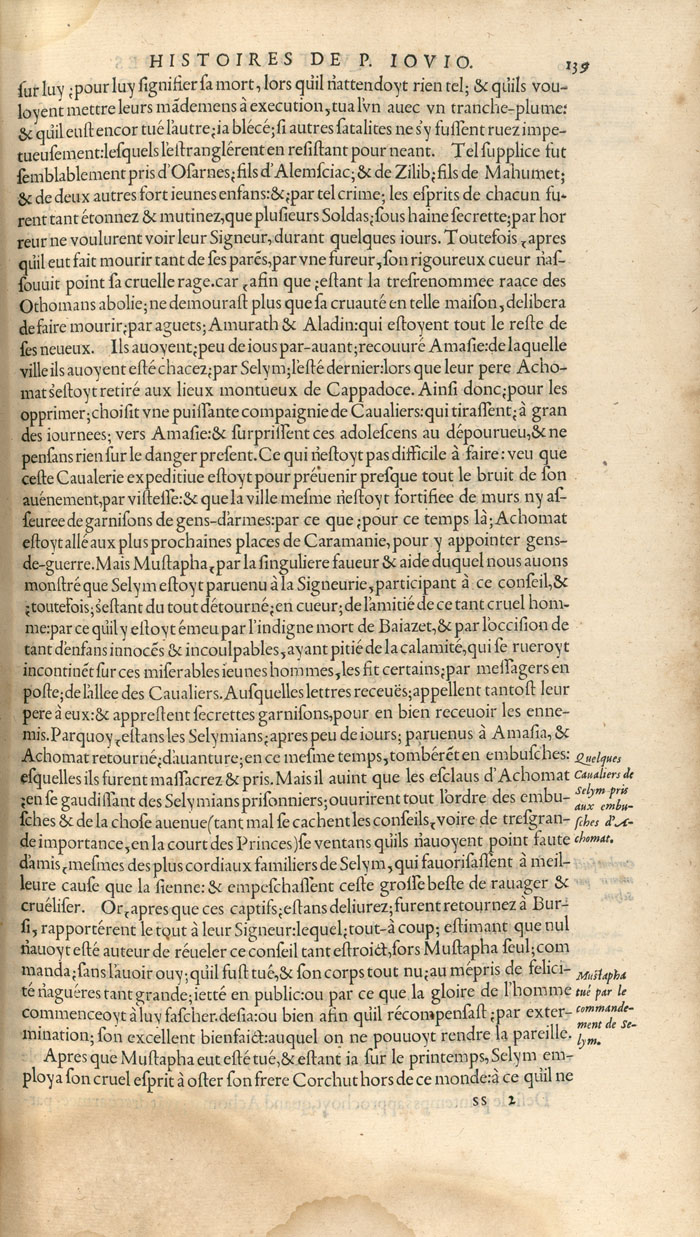 HISTOIRES DE P. IOVIO. 139
ſur luy ;pour luy ſignifier ſa mort, lors qu'il n'attendoyt rien tel; & qu'ils vou-
loyent mettre leurs mādemens à execution, tua l'vn auec vn tranche-plume:
& qu'il euſt encor tué l'autre;ia blécé;ſi autres ſatalites ne s'y fuſſent ruez impe-
tueuſement:leſquels l'eſtranglérent en reſiſtant pour neant. Tel ſupplice fut
ſemblablement pris d'Oſarnes;fils d'Alemſciac;& de Zilib;fils de Mahumet;
& de deux autres fort ieunes enfans:&;par tel crime; les eſprits de chacun fu-
rent tant étonnez & mutinez,que pluſieurs Soldas;ſous haine ſecrette;par hor
reur ne voulurent voir leur Signeur, durant quelques iours. Toutefois ,apres
qu'il eut fait mourir tant de ſes parēs,par vne fureur, ſon rigoureux cueur n'aſ-
ſouuit point ſa cruelle rage.car ,afin que ;eſtant la treſrenommee raace des
Othomans abolie;ne demouraſt plus que ſa cruauté en telle maiſon, delibera
de faire mourir;par aguets; Amurath & Aladin:qui eſtoyent tout le reſte de
ſes neueux. Ils auoyent;peu de iours par-auant;recouuré Amaſie:de laquelle
ville ils auoyent eſté chacez;par Selym;l'eſté dernier:lors que leur pere Acho-
mat s'eſtoyt retiré aux lieux montueux de Cappadoce. Ainſi donc;pour les
opprimer;choiſit vne puiſſante compaignie de Caualiers:qui tiraſſent;à gran
des iournees; vers Amaſie:& ſurpriſſent ces adoleſcens au dépourueu,& ne
penſans rien ſur le danger preſent. Ce qui n'eſtoyt pas difficile à faire: veu que
ceſte Caualerie expeditiue eſtoyt pour préuenir preſque tout le bruit de ſon
auénement,par viſteſſe:& que la ville meſme n'eſtoyt fortifiee de murs ny aſ-
ſeuree de garniſons de gens-d'armes:par ce que ;pour ce temps là; Achomat
eſtoyt allé aux plus prochaines places de Caramanie, pour y appointer gens-
de-guerre. Mais Muſtapha ,par la ſinguliere faueur & aide duquel nous auons
monſtré que Selym eſtoyt paruenu à la Signeurie, participant à ce conſeil,&
;toutefois;s'eſtant du tout détourné;en cueur;de l'amitié de ce tant cruel hom-
me:par ce qu'il y eſtoyt émeu par l'indigne mort de Baiazet,& par l'occiſion de
tant d'enfans innocēs & incoulpables, ayant pitié de la calamité, qui ſe rueroyt
incontinēt ſur ces miſerables ieunes hommes, les fit certains;par meſſagers en
poſte;de l'allee des Caualiers. Auſquelles lettres receuës;appellent tantoſt leur
pere à eux:& appreſtent ſecrettes garniſons,pour en bien receuoir les enne-
mis. Parquoy ,eſtans les Selymians;apres peu de iours; paruenus à Amaſia, &
Achomat retourné;d'auanture;en ce meſme temps, tombérēt en embuſches:
eſquelles ils furent maſſacrez & pris. Mais il auint que les eſclaus d'Achomat
;en ſe gaudiſſant des Selymians priſonniers;ouurirent tout l'ordre des embu-
ſches & de la choſe auenue(tant mal ſe cachent les conſeils, voire de treſgran-
de importance, en la court des Princes)ſe ventans qu'ils n'auoyent point faute
d'amis ,meſmes des plus cordiaux familiers de Selym, qui fauoriſaſſent à meil-
leure cauſe que la ſienne: & empeſchaſſent ceſte groſſe beſte de rauager &
cruéliſer. Or ,apres que ces captifs;eſtans deliurez;furent retournez à Bur-
ſi, rapportérent le tout à leur Signeur:lequel;tout-à coup; eſtimant que nul
n'auoyt eſté auteur de réueler ce conſeil tant eſtroict, fors Muſtapha ſeul; com
manda;ſans l'auoir ouy; qu'il fuſt tué,& ſon corps tout nu;au mépris de felici-
té n'aguéres tant grande;ietté en public:ou par ce que la gloire de l'homme
commenceoyt à luy faſcher.deſia:ou bien afin qu'il récompenſaſt ;par exter-
mination; ſon excellent bienfaict:auquel on ne pouuoyt rendre la pareille.
Apres que Muſtapha eut eſté tué,& eſtant ia ſur le printemps, Selym em-
ploya ſon cruel eſprit à oſter ſon frere Corchut hors de ce monde:à ce qu'il ne
ss 2
Quelques
Caualiers de
Selym pris
aux embu-
ſches d'A-
chomat.
Muſtapha
tué par le
commande-
ment de Se-
lym.